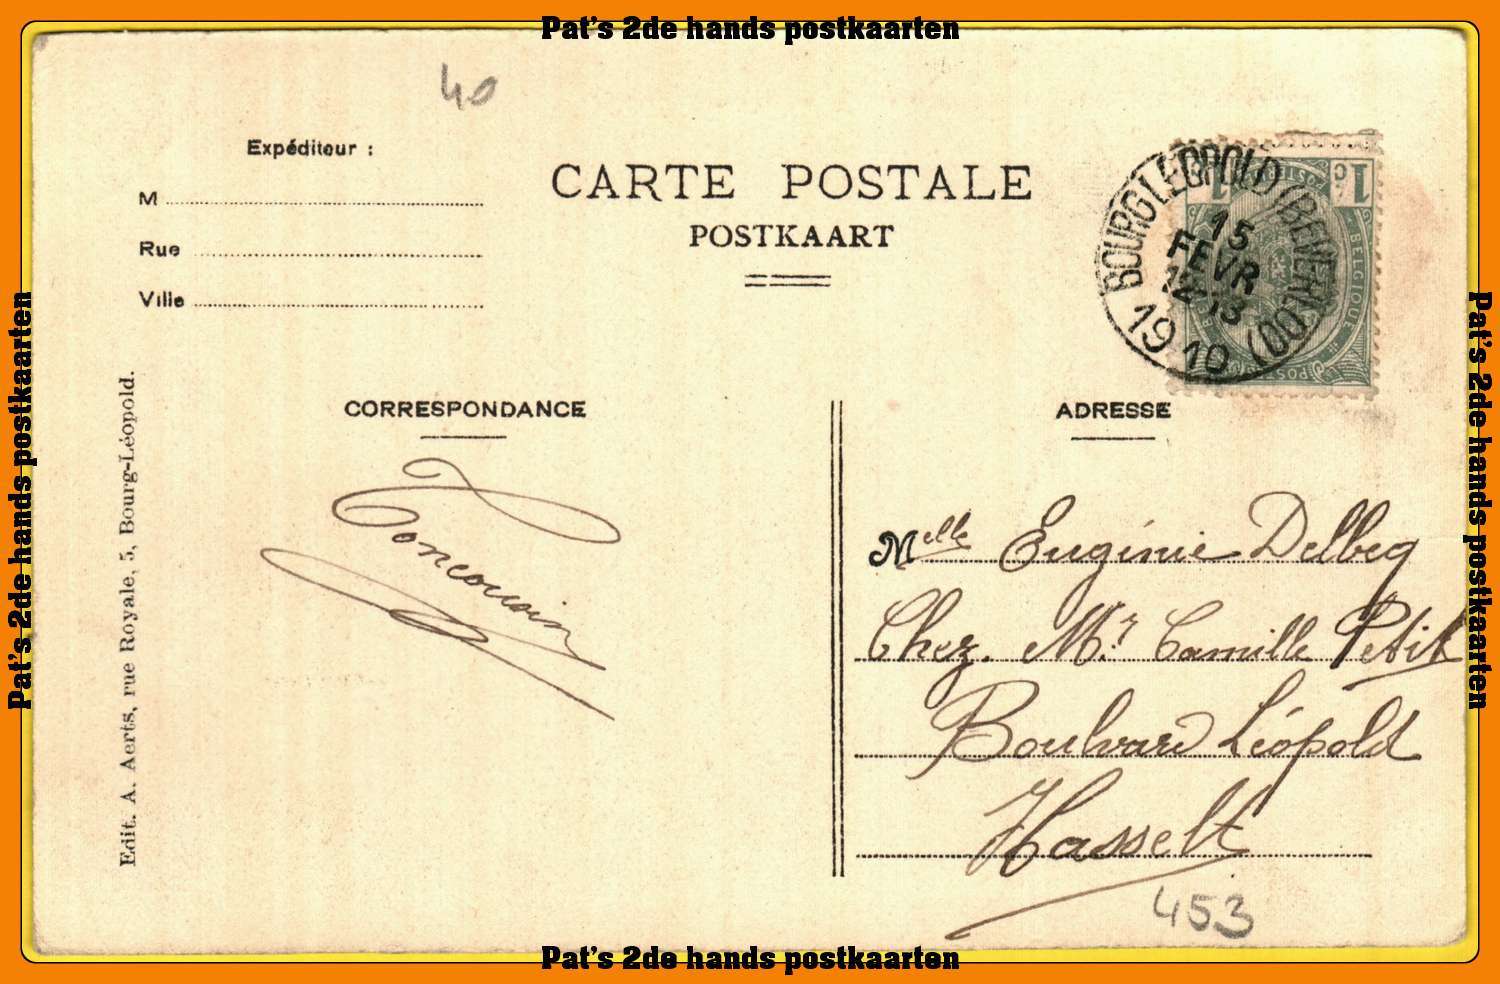 Pat's 2de hands postkaarten
40
Expéditeur :
M
Rue
Ville
CARTE POSTALE
POSTKAART
BOURG LEOPOLD (BEVERLOO)
15
FEVR
12-13
1910
1 C.
BELGIQUE
CORRESPONDANCE
Ton cousin
ADRESSE
Melle Eugénie Delbecq
Chez. Mr. Camille Petit
Boulvard Léopold
Hasselt
453
Edit. A. Aerts, rue Royale, 5, Bourg-Léopold.
Pat's 2de hands postkaarten
Pat's 2de hands postkaarten
Pat's 2de hands postkaarten